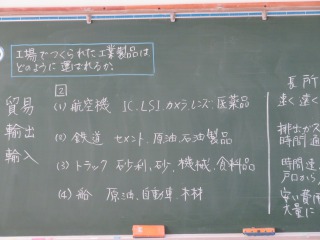 工場でつくられた工業製品は
どのように運ばれるか。
貿易
輸出
輸入
2
(1) 航空機 IC.LSI カメラレンズ.医薬品
(2) 鉄道 セメント.原油石油製品
(3) トラック 砂利,砂,機械,食料品
(4) 船 原油,自動車.木材
長所
速く
排士ガス
時間通
時間
戸口から
安い費用
大量に